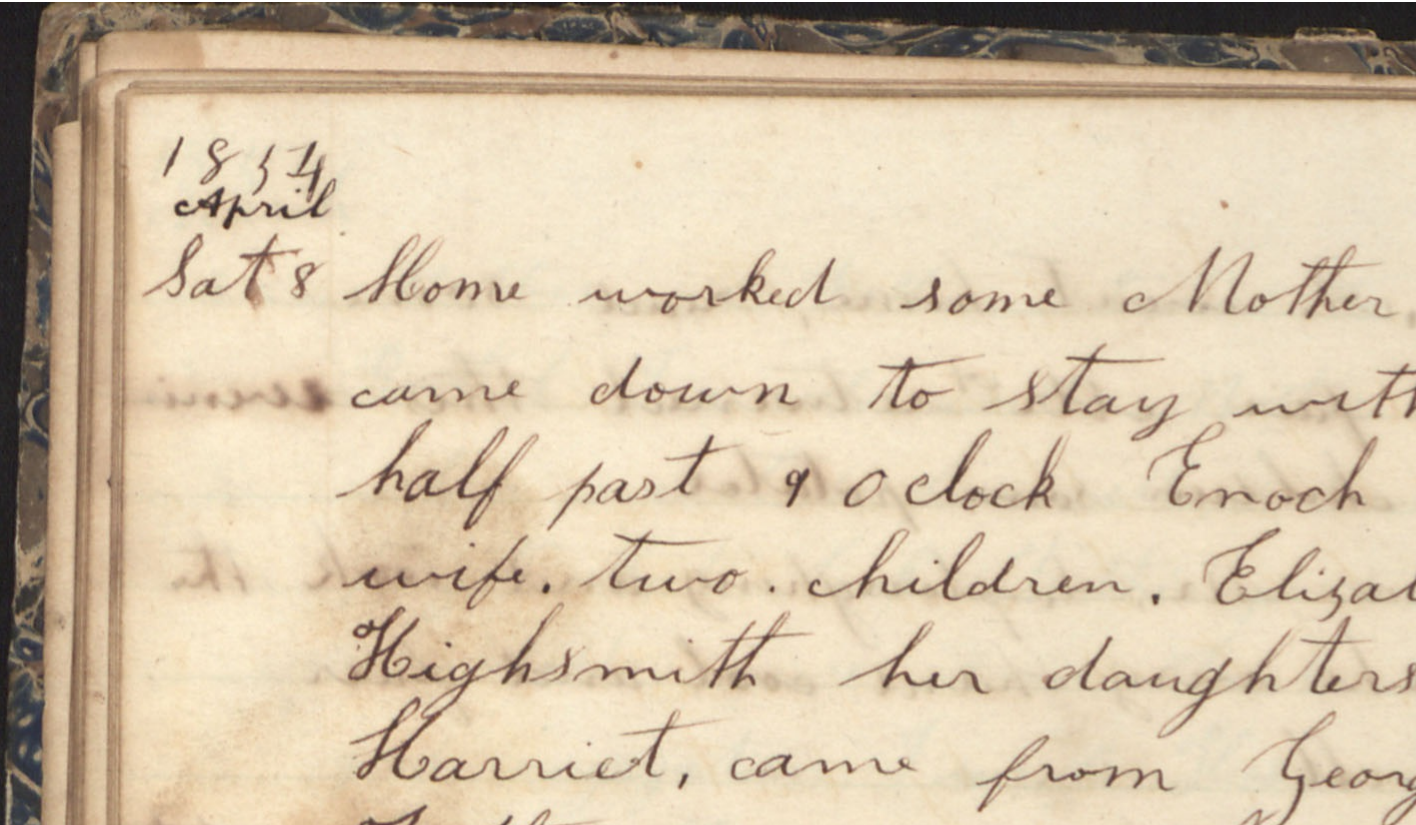 1854
April
Sat 8 Home worked some Mother,
came down to stay with
half past 9 O clock Enoch
wife. two. children. Elizab
Highsmith her daughters
Harriet, came from Georg